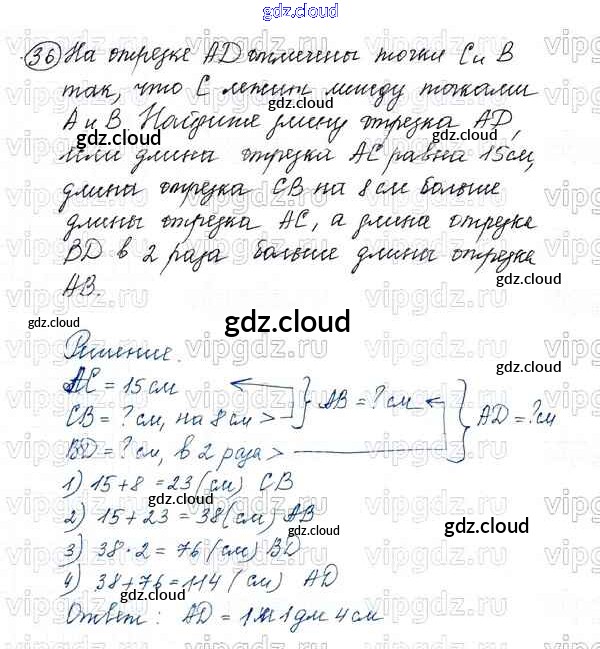 gdz.cloud
36 На отрезке AD отмечены точки C и B
так, что C лежит между точками
A и B. Найдите длину отрезка AD,
если длина отрезка AC равна 15см,
длина отрезка CB на 8см больше
длины отрезка AC, а длина отрезка
BD в 2 раза больше длины отрезка
AB.
Решение.
AC = 15см
CB = ? см, на 8см > } AB = ? см } AD = ? см
BD = ? см, в 2 раза >
1) 15 + 8 = 23 (см) CB
2) 15 + 23 = 38 (см) AB
3) 38 · 2 = 76 (см) BD
4) 38 + 76 = 114 (см) AD
Ответ: AD = 1м 1дм 4см
gdz.cloud
vipgdz.ru